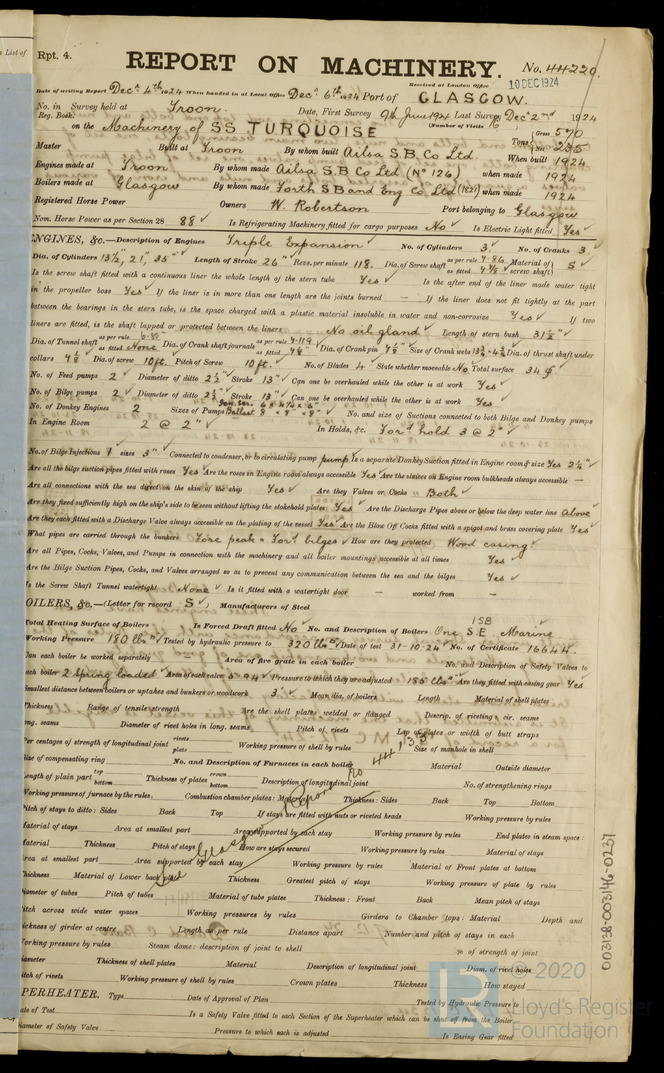 s List of
Rpt. 4.
REPORT ON MACHINERY.
No. 44220.
Received at London Office 10 DEC 1924
Date of writing Report Decr 4th 1924 When handed in at Local Office Decr 6th 1924 Port of GLASGOW.
No. in Survey held at Troon. Date, First Survey 9th June 1924 Last Survey Decr 2nd 1924
Reg. Book. (Number of Visits
on the Machinery of SS TURQUOISE Tons Gross 570 Net 235
Master Built at Troon By whom built Ailsa S.B. Co Ltd. When built 1924
Engines made at Troon By whom made Ailsa S.B. Co Ltd (No 126) when made 1924
Boilers made at Glasgow By whom made Forth S B and Eng Co Ltd when made 1924
Registered Horse Power Owners W. Robertson Port belonging to Glasgow
Nom. Horse Power as per Section 28 88 Is Refrigerating Machinery fitted for cargo purposes No Is Electric Light fitted Yes
ENGINES, &c.—Description of Engines Triple Expansion No. of Cylinders 3 No. of Cranks 3
Dia. of Cylinders 13½", 21", 35" Length of Stroke 26" Revs. per minute 118. Dia. of Screw shaft as per rule 4.86 as fitted Material of screw shaft S
Is the screw shaft fitted with a continuous liner the whole length of the stern tube Yes Is the after end of the liner made water tight
in the propeller boss Yes If the liner is in more than one length are the joints burned — If the liner does not fit tightly at the part
between the bearings in the stern tube, is the space charged with a plastic material insoluble in water and non-corrosive Yes If two
liners are fitted, is the shaft lapped or protected between the liners No oil gland Length of stern bush 31½"
Dia. of Tunnel shaft as per rule as fitted None Dia. of Crank shaft journals as per rule as fitted Dia. of Crank pin Size of Crank webs Dia. of thrust shaft under
collars Dia. of screw 10ft. Pitch of Screw 10ft. No. of Blades 4 State whether moveable No Total surface 34
No. of Feed pumps 2 Diameter of ditto 2½" Stroke 13" Can one be overhauled while the other is at work Yes
No. of Bilge pumps 2 Diameter of ditto 2½" Stroke 13" Can one be overhauled while the other is at work Yes
No. of Donkey Engines 2 Sizes of Pumps Ballast 8" × 8" × 8" No. and size of Suctions connected to both Bilge and Donkey pumps
In Engine Room 2 @ 2" In Holds, &c. For'd hold 3 @ 2"
No. of Bilge Injections 1 sizes 3" Connected to condenser, or to circulating pump pump Is a separate Donkey Suction fitted in Engine room & size Yes 2½"
Are all the bilge suction pipes fitted with roses Yes Are the roses in Engine room always accessible Yes Are the sluices on Engine room bulkheads always accessible —
Are all connections with the sea direct on the skin of the ship Yes Are they Valves or Cocks Both
Are they fixed sufficiently high on the ship's side to be seen without lifting the stokehold plates Yes Are the Discharge Pipes above or below the deep water line Above
Are they each fitted with a Discharge Valve always accessible on the plating of the vessel Yes Are the Blow Off Cocks fitted with a spigot and brass covering plate Yes
What pipes are carried through the bunkers Fore peak & For'd bilges How are they protected Wood casing
Are all Pipes, Cocks, Valves, and Pumps in connection with the machinery and all boiler mountings accessible at all times Yes
Are the Bilge Suction Pipes, Cocks, and Valves arranged so as to prevent any communication between the sea and the bilges Yes
Is the Screw Shaft Tunnel watertight None Is it fitted with a watertight door — worked from —
BOILERS, &c.—(Letter for record S) Manufacturers of Steel
Total Heating Surface of Boilers Is Forced Draft fitted No No. and Description of Boilers One S.E. Marine 1SB
Working Pressure 180 lbs Tested by hydraulic pressure to 320 lbs Date of test 31-10-24 No. of Certificate 16644.
Can each boiler be worked separately Area of fire grate in each boiler No. and Description of Safety Valves to
each boiler 2 Spring loaded Area of each valve 5.94 Pressure to which they are adjusted 185 lbs Are they fitted with easing gear Yes
Smallest distance between boilers or uptakes and bunkers or woodwork 3' Mean dia. of boilers Length Material of shell plates
Thickness Range of tensile strength Are the shell plates welded or flanged Descrip. of riveting: cir. seams
long. seams Diameter of rivet holes in long. seams Pitch of rivets Lap of plates or width of butt straps
Per centages of strength of longitudinal joint rivets plate Working pressure of shell by rules Size of manhole in shell
Size of compensating ring No. and Description of Furnaces in each boiler Material Outside diameter
Length of plain part top bottom Thickness of plates crown bottom Description of longitudinal joint No. of strengthening rings
Working pressure of furnace by the rules Combustion chamber plates: Material Thickness: Sides Back Top Bottom
Pitch of stays to ditto: Sides Back Top If stays are fitted with nuts or riveted heads Working pressure by rules
Material of stays Area at smallest part Area supported by each stay Working pressure by rules End plates in steam space:
Material Thickness Pitch of stays How are stays secured Working pressure by rules Material of stays
Area at smallest part Area supported by each stay Working pressure by rules Material of Front plates at bottom
Thickness Material of Lower back plate Thickness Greatest pitch of stays Working pressure of plate by rules
Diameter of tubes Pitch of tubes Material of tube plates Thickness: Front Back Mean pitch of stays
Pitch across wide water spaces Working pressures by rules Girders to Chamber tops: Material Depth and
thickness of girder at centre Length as per rule Distance apart Number and pitch of stays in each
Working pressure by rules Steam dome: description of joint to shell % of strength of joint
Diameter Thickness of shell plates Material Description of longitudinal joint Diam. of rivet holes
Pitch of rivets Working pressure of shell by rules Crown plates Thickness How stayed
See Glasgow Report No 44138
SUPERHEATER. Type Date of Approval of Plan Tested by Hydraulic Pressure to
Date of Test Is a Safety Valve fitted to each Section of the Superheater which can be shut off from the Boiler
Diameter of Safety Valve Pressure to which each is adjusted Is Easing Gear fitted
003138-003146-0237
© 2020
Lloyd's Register
Foundation